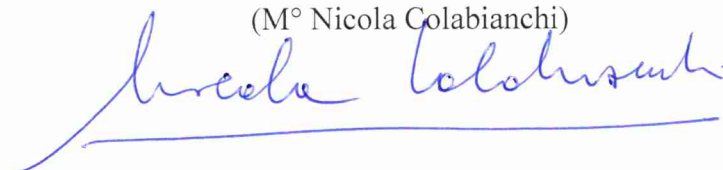 (M° Nicola Colabianchi)
Nicola Colabianchi